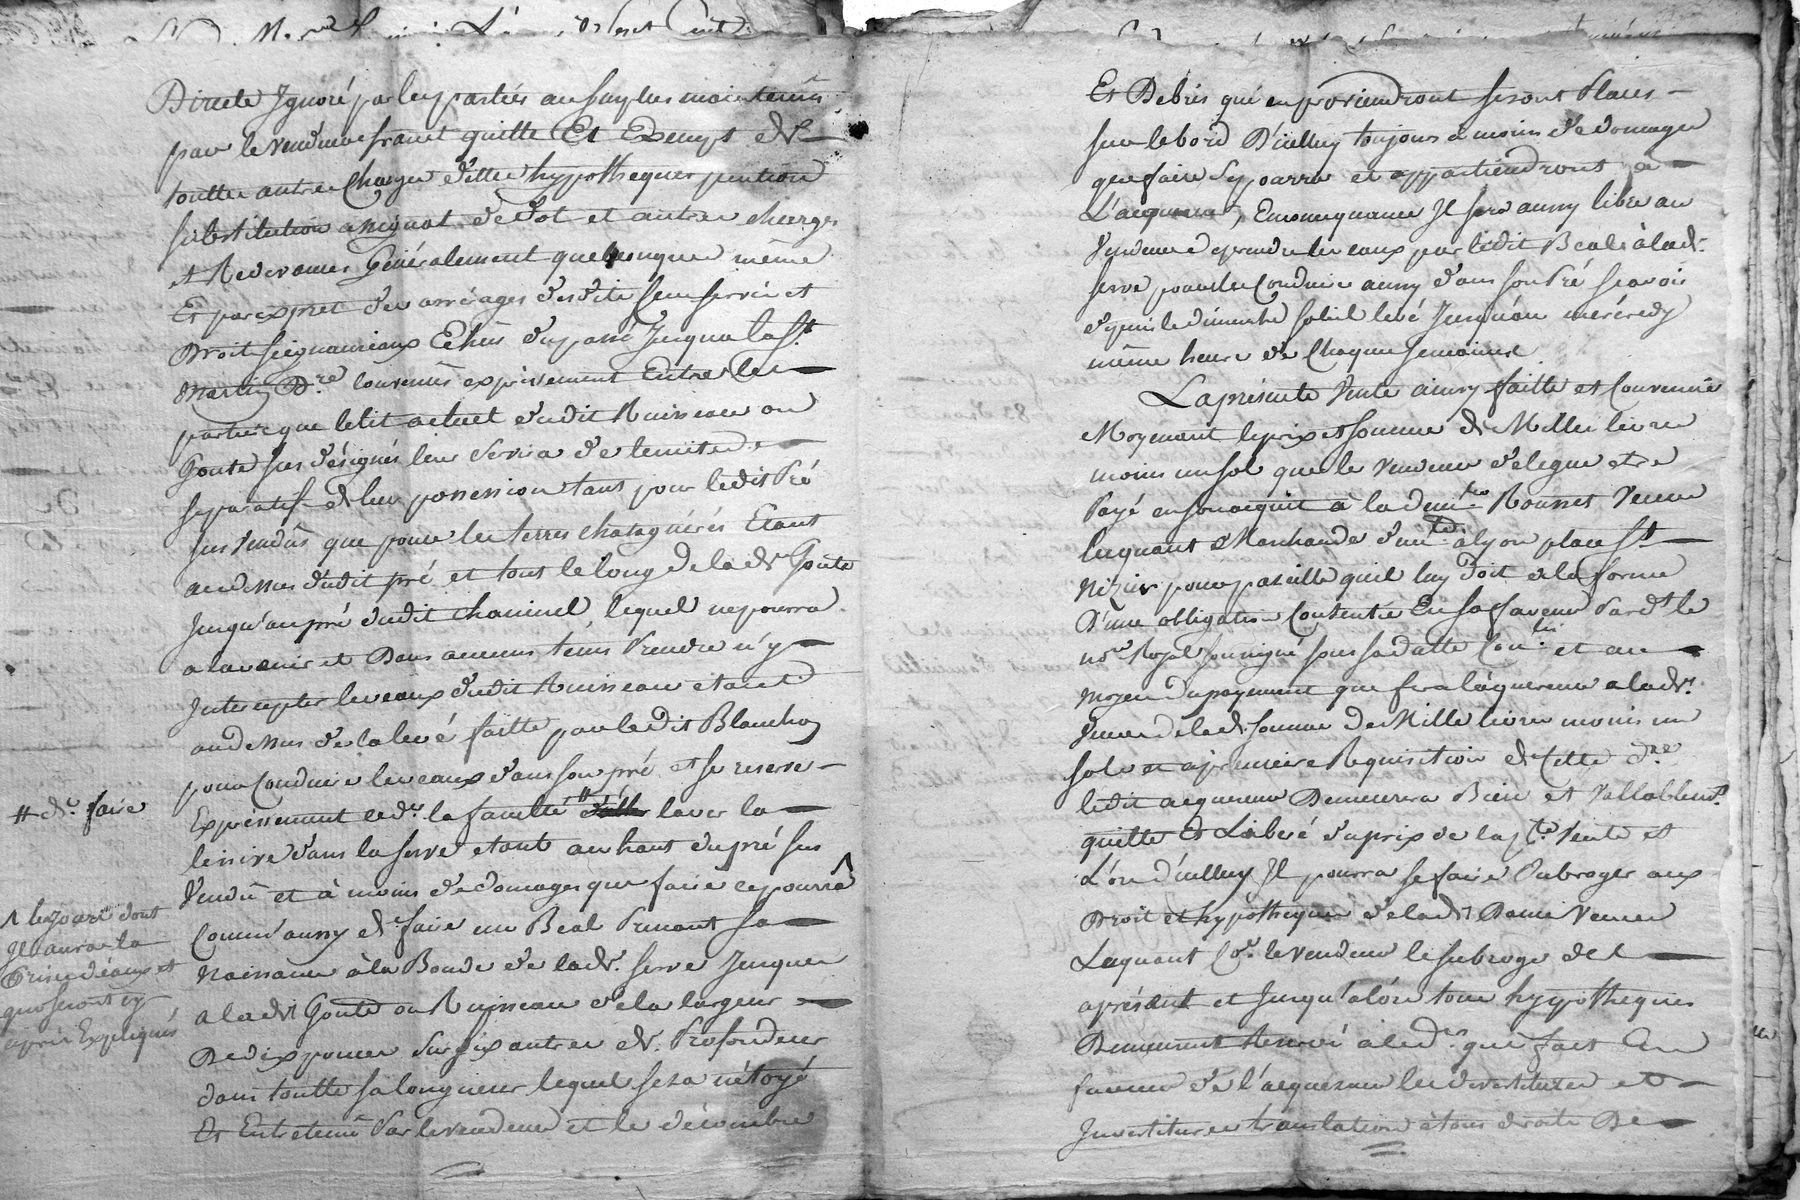 Directe Jgnoré par les parties au surplus maintenus
par le vendeur franct quitte Et Exempt de
touttes autres Charges dettes hypotheques pention
substitution assignat de dot et autres charges
et Redevances Généralement quelconques même
Et par expret des arrérages desdits sens servis et
Droit seigneuriaux Echus du passé Jusqua la St.
Martin Dre. convenus expréssement Entre les
parties que le lit actuel dudit Ruisseau ou
Goute sus désignés leur servira de limitte
séparatif de leur possession tant pour ledit Pré
sus vendus que pour les terres chatagnérés Etant
au dessus dudit pré et tout le long de lade. Goute
Jusqu'au pré dudit chaninel, lequel ne pourra
a lavenir et Dans aucuns tems Prendre n'y
Jntercepter les eaux dudit Ruisseau etant
audessus de la levé faitte par ledit Blanchon
pour Conduire les eaux dans son pré et se reserve
Expressement led. la faculté # laver la
# de faire
lessive dans la serve etant au haut du pré sus
Vendu et à moins de domages que faire ce pourra
Comm'aussy de faire un Beal Prenant sa
Naissance à la Bonde de lade. serve Jusques
a lade Goute ou Ruisseau de la largeur
De dix pouces sur six autres de Profondeur
dans toutte sa longueur lequel sera nétoyé
Et Entretenu Par le vendeur et le décombre
dont
Jl aura la
Prise d'eaux et
que seront cy
après Expliqués
Et Debris qui en proviendront seront Placés
sur le bord D'icelluy toujours a moins de domages
que faire se pourra et appartiendront a
L'acquereur, Em conséquance Jl sera aussy libre au
Vendeur de prendre les eaux par ledit Beal à lade.
serve pour les Conduire aussy dans son Pré scavoir
depuis le dimanche soleil levé Jusqu'au mércredy
même heure de Chaque semaine
La présente Vente ainsy faitte et Convenue
Moyenant le prix et somme de Mille livres
moins un sol que le vendeur délegue etre
Payé en son acquit à la demlle Rousset Veuve
Lequant Marchande à lyon place St.
Nizier pour pareille qu'il luy doit de la forme
D'une obligation Consentie En sa faveur Pardt. le
nore Royal soussigné sous sa datte et au
moyen du payement que fera l'aquereur a lade.
veuve de lade somme de Mille livres moins un
sol et a premiere Requisition de Cette dre
ledit acquereur Demeurera Bien et Vallablemt.
quitte Et Libéré du prix de la pte Vente et
L'ors d'icelluy Jl pourra se faire Subroger aux
Droit et hypotheques de lade Dame Veuve
Lequant le vendeur le subroge des
aprésent et Jusqu'alors tous hypotheques
Demeurant Réservé aled. que fait En
faveur de l'acquereur les devestitures et
Jnvestitures translation de tous droits De